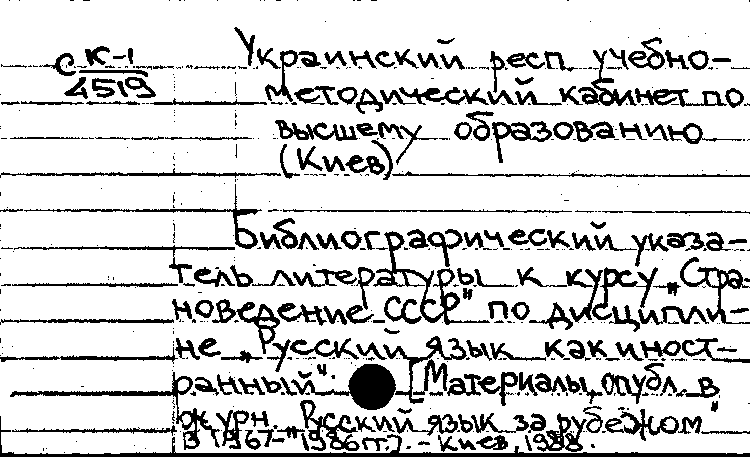 с К-1
4519
Украинский респ. учебно-
методический кабинет по
высшему образованию
(Киев).
Библиографический указа-
тель литературы к курсу „Стра-
новедение СССР" по дисципли-
не „Русский язык как иност-
ранный". [Материалы, опубл. в
журн. „Русский язык за рубежом"
в 1967-1986 гг.]. - Киев, 1988.